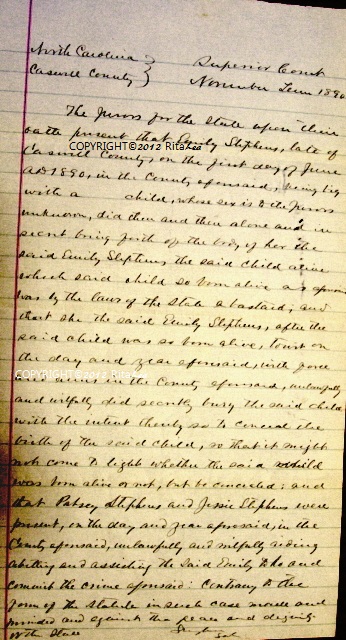 North Carolina } Superior Court
Caswell County } November Term 1890
The Jurors for the State upon their
oath present that Emily Stephens, late of
COPYRIGHT©2012 Ritahia
Caswell County, on the first day of June
AD 1890, in the County aforesaid, being big
with a child, whose sex is to the Jurors
unknown, did then and there alone and in
secret bring forth of the body of her the
said Emily Stephens the said child alive
which said child so born alive as aforesaid
was by the laws of the State a bastard; and
that she the said Emily Stephens, after the
said child was so born alive, towit on
the day and year aforesaid, with force
COPYRIGHT©2012 Ritahia
and arms in the County aforesaid, unlawfully
and wilfully did secretly bury the said child
with the intent thereby so to conceal the
birth of the said child, so that it might
not come to light whether the said child
was born alive or not, but be concealed; and
that Patsey Stephens and Jessie Stephens were
present, on the day and year aforesaid, in the
County aforesaid, unlawfully and wilfully aiding
abetting and assisting the said Emily to do and
commit the crime aforesaid: Contrary to the
form of the statute in such case made and
provided and against the peace and dignity
of the State